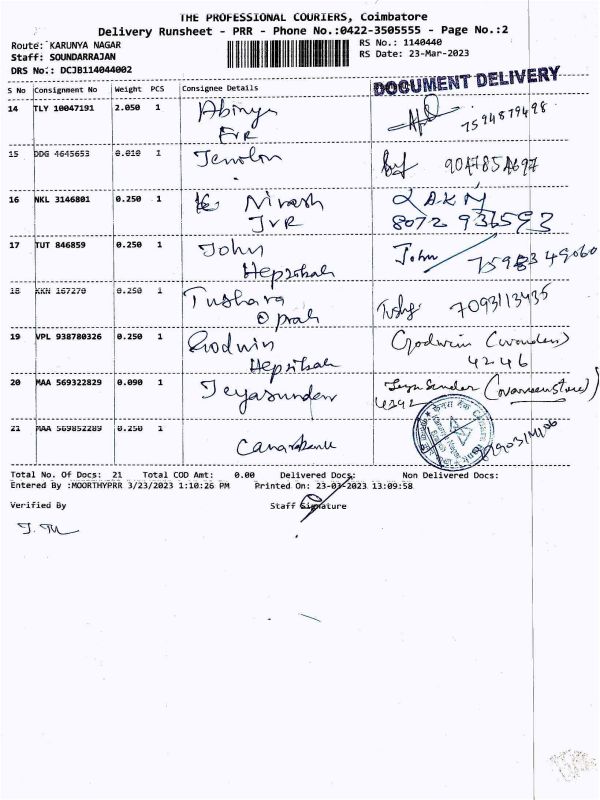 THE PROFESSIONAL COURIERS, Coimbatore
Delivery Runsheet - PRR - Phone No.:0422-3505555 - Page No.:2
Route: KARUNYA NAGAR
RS No.: 1140440
Staff: SOUNDARRAJAN
RS Date: 23-Mar-2023
DRS No.: DCJB114044002
DOCUMENT DELIVERY
S No Consignment No Weight PCS Consignee Details
14 TLY 10047191 2.050 1 Abinya
EVR
7594879498
15 DDG 4645653 0.010 1 Jenolon
16 NKL 3146801 0.250 1 Niresh LAKM
JVR 8072 936593
17 TUT 846859 0.250 1 John John
Hepzibah
18 KKN 167270 0.250 1 Tushara 7093113435
Oprah
19 VPL 938780326 0.250 1 Godwin Godwin
Hepzibah 4246
20 MAA 569322829 0.090 1 Jeyasunder
4292
21 MAA 569852289 0.250 1
Canarabank
Total No. Of Docs: 21 Total COD Amt: 0.00 Delivered Docs: Non Delivered Docs:
Entered By :MOORTHYPRR 3/23/2023 1:10:26 PM Printed On: 23-03-2023 13:09:58
Verified By Staff Signature